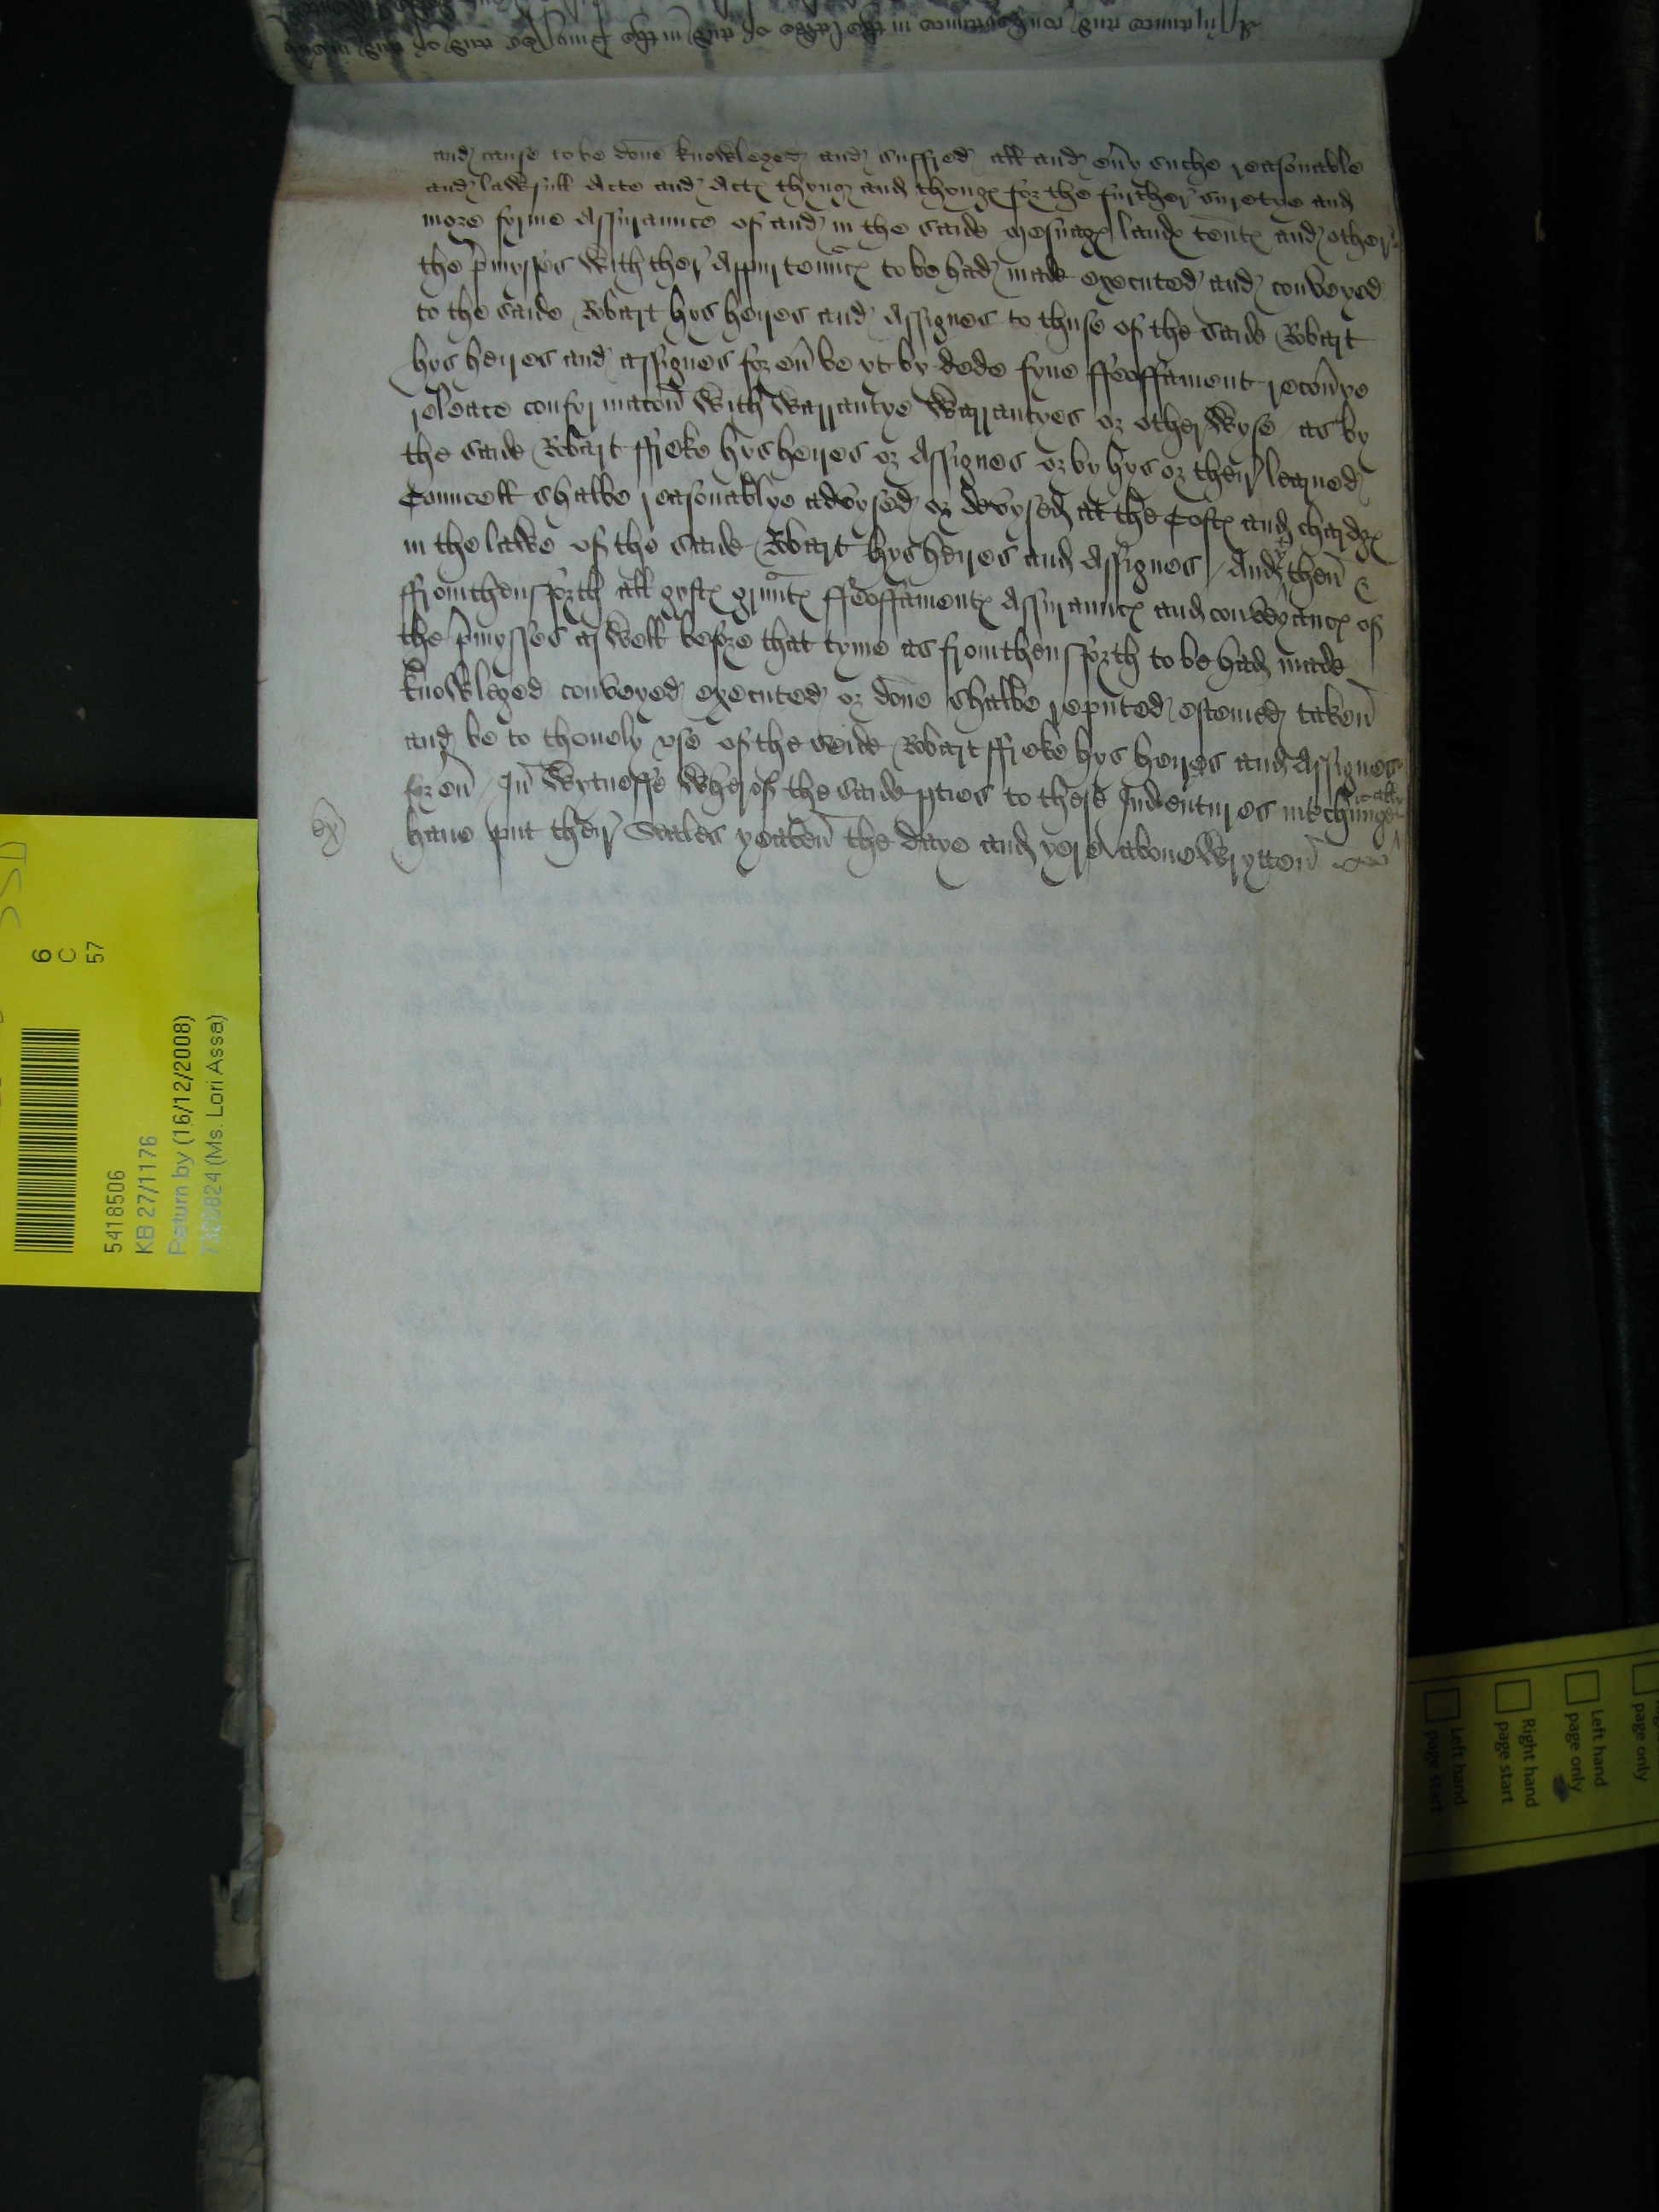 and cause to be done knowleged and suffred all and eny suche reasonable
and lawfull Acte and Actes thyng and thynges for the further suretye and
more fyrme Assuraunce of and in the saide mesuages landes tentes and other
the pmysses with ther Appurtennces to be had made executed and conveyed
to the saide Robart hys heyres and Assignes to thuse of the saide Robart
hys heyres and assignes for eu be yt by dede fyne ffeoffament recouye
releace confyrmacon with warrantye warrantyes or otherwyse as by
the saide Robart ffreke hys heyres or Assignes or by hys or theyr learned
Councell shalbe reasonablye advysed or devysed at the Costes and chardges
in the lawe of the saide Robart hys heyres and Assignes / And then &
ffromthensforth all gyftes grauntes ffeoffamentes Assuraunces and conveyances of
the pmysses aswell before that tyme as fromthensforth to be had made
knowleged conveyed executed or done shalbe reputed estemed taken
and be to thonely use of the saide Robart ffreke hys heyres and Assignes
for eu / In wytnesse wherof the saide pties to these Indentures intechunge
ably
have put theyr Seales yeaven the daye and yere above wrytten
ex
5418506
KB 27/1176
Return by (16/12/2008)
7320824 (Ms. Lori Assa)
6
C
57
SSD
Left hand
page start
Right hand
page start
Left hand
page only
page only